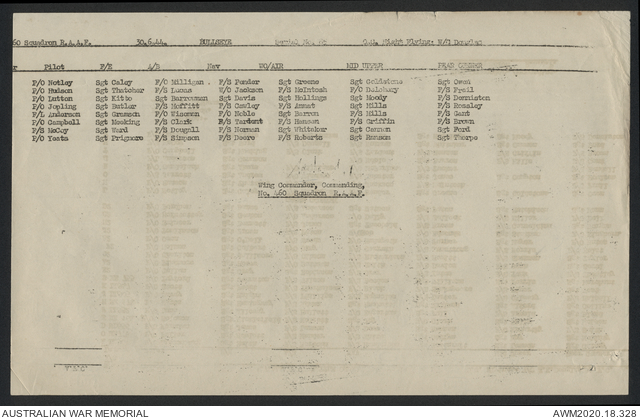 60 Squadron R.A.A.F. 30.6.44. BULLSEYE Serial No. Night Flying: W/I Douglas
r Pilot F/E A/B Nav WO/AIR MID UPPER REAR GUNNER
P/O Notley Sgt Caley F/O Milligan . F/S Pender Sgt Greene Sgt Goldstone Sgt Owen
P/O Hudson Sgt Thatcher F/S Lucas W/O Jackson F/S McIntosh F/O Dulohery F/S Frail
P/O Lutton Sgt Kitto Sgt Barrowman Sgt Davis Sgt Hollings Sgt Moody F/S Dermiston
F/O Jopling Sgt Butler F/S Moffitt F/S Cowley F/S Annat Sgt Mills F/S Rowley
F/L Anderson Sgt Grunson F/O Wiseman F/O Noble Sgt Barron F/S Mills F/S Gant
P/O Campbell Sgt Meeking F/S Clark F/S Tardent F/S Hansen F/S Griffin F/S Brown
F/S McCoy Sgt Ward F/S Dougall F/S Norman Sgt Whitaker Sgt Cannon Sgt Ford
P/O Yeats Sgt Prigmore F/S Simpson F/S Deere F/S Roberts Sgt Ranson Sgt Thorpe
Wing Commander, Commanding,
No. 460 Squadron R.A.A.F.
AUSTRALIAN WAR MEMORIAL AWM2020.18.328